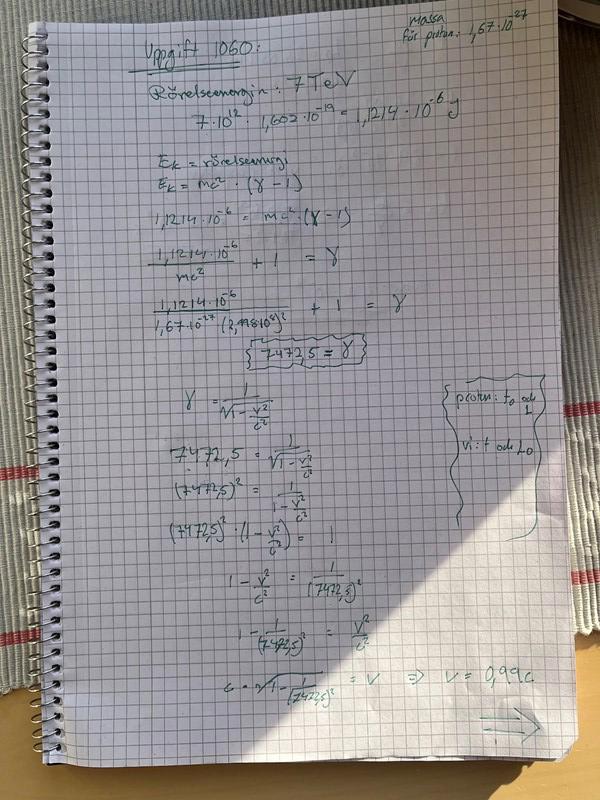 massa
för proton: 1,67·10⁻²⁷
Uppgift 1060:
Rörelseenergin: 7 TeV
7·10¹² · 1,602·10⁻¹⁹ = 1,1214·10⁻⁶ J
Eₖ = rörelseenergi
Eₖ = mc² · (γ − 1)
1,1214·10⁻⁶ = mc² · (γ − 1)
1,1214·10⁻⁶ / mc² + 1 = γ
1,1214·10⁻⁶ / 1,67·10⁻²⁷ · (2,998·10⁸)² + 1 = γ
7472,5 = γ
γ = 1 / √(1 − v²/c²)
proton: t₀ och L
vi: t och L₀
7472,5 = 1 / √(1 − v²/c²)
(7472,5)² = 1 / (1 − v²/c²)
(7472,5)² · (1 − v²/c²) = 1
1 − v²/c² = 1 / (7472,5)²
1 − 1 / (7472,5)² = v²/c²
c · √(1 − 1 / (7472,5)²) = v ⇒ v = 0,99c